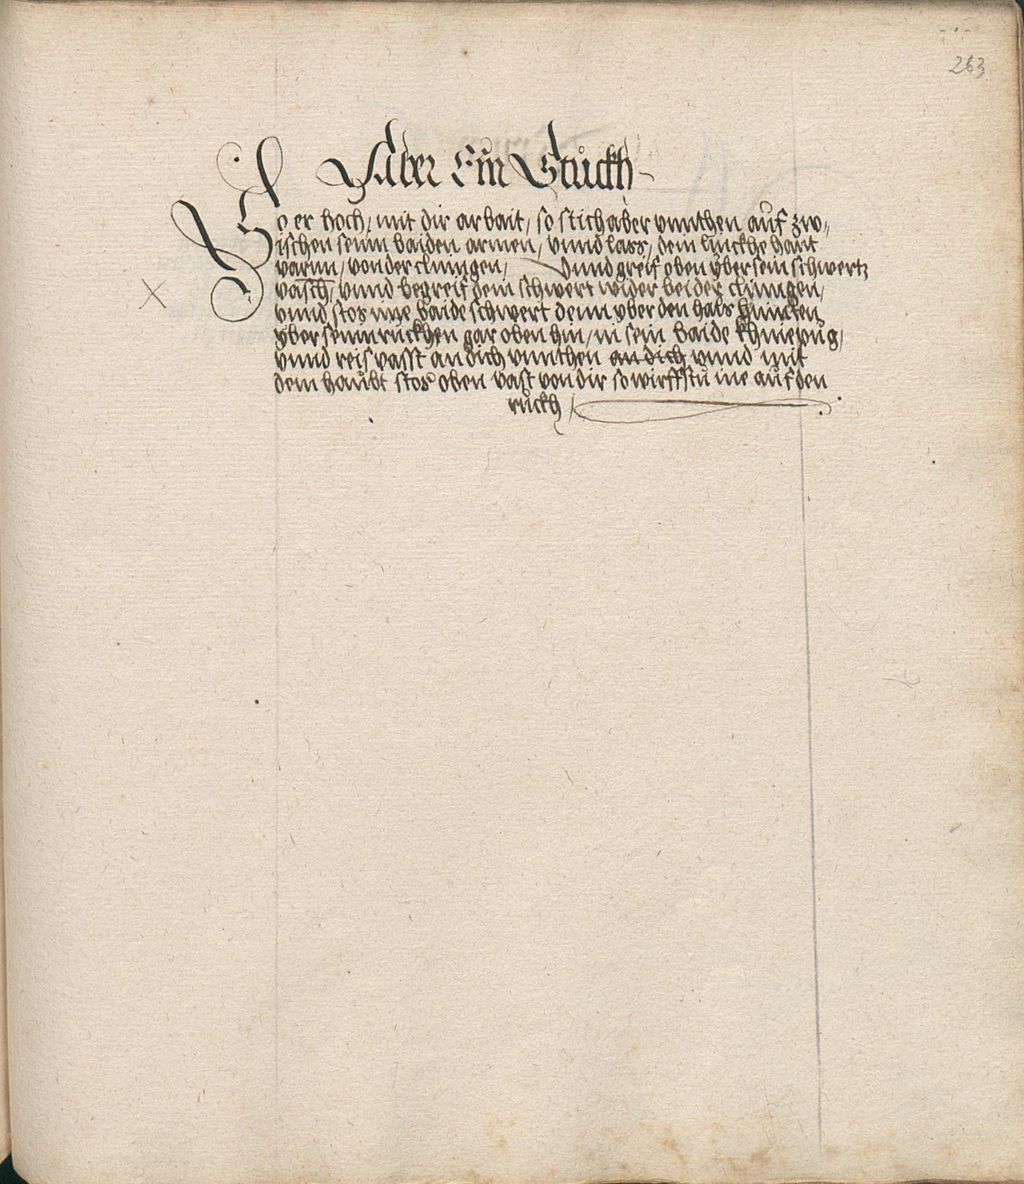 263
Aber Ein Stuckh
So er hoch, mit dir arbait, so stich aber vnnthen auf zw,
ischen seinn baiden armen, vnnd lass, dein linckhe hant
varnn, von der clinngen, Vnnd greif oben yber sein schwertz
vasch, vnnd begreif dein schwert wider bei der clinngen,
vnnd stos ime baide schwert denn yber den hals hinden
yber seinn ruckhen gar oben hin, in sein baide khniepug,
vnnd reis vasst an dich vnnthen an dich vnnd mit
dem haubt stos oben vast von dir so wirffstu ine auf den
ruckh